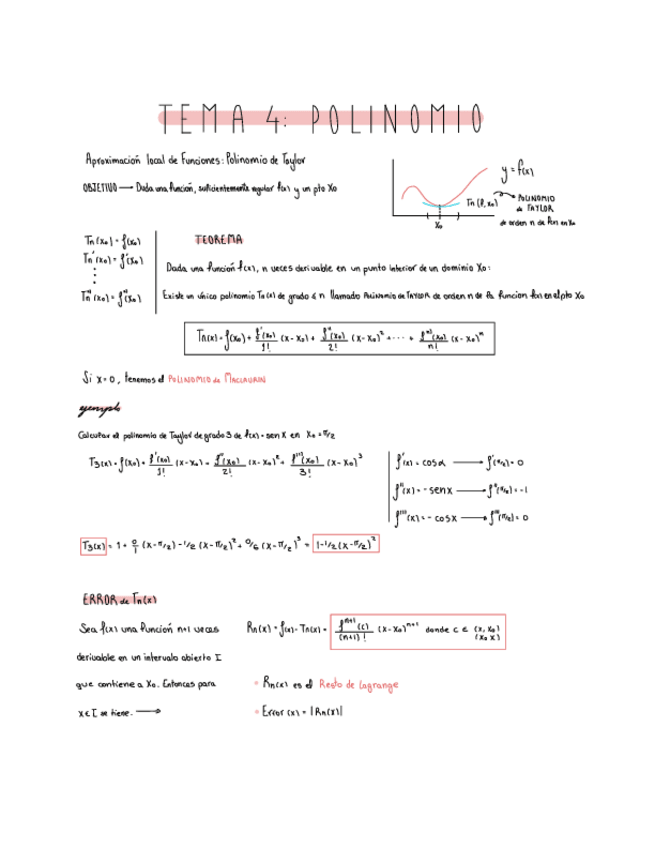 TEMA 4: POLINOMIO
Aproximación local de Funciones: Polinomio de Taylor
OBJETIVO → Dada una función, suficientemente regular f(x) y un pto x₀
y = f(x)
Tn (f, x₀)
POLINOMIO
de TAYLOR
de orden n de f(x) en x₀
x₀
Tn (x₀) = f(x₀)
Tn'(x₀) = f'(x₀)
⋮
Tnⁿ(x₀) = fⁿ(x₀)
TEOREMA
Dada una función f(x), n veces derivable en un punto interior de un dominio x₀:
Existe un único polinomio Tn(x) de grado ≤ n llamado POLINOMIO de TAYLOR de orden n de la funcion f(x) en el pto x₀
Tn(x) = f(x₀) + f'(x₀)/1! (x-x₀) + f''(x₀)/2! (x-x₀)² + ··· + fⁿ⁾(x₀)/n! (x-x₀)ⁿ
Si x=0, tenemos el POLINOMIO de MACLAURIN
ejemplo
Calcular el polinomio de Taylor de grado 3 de f(x) = sen x en x₀ = π/2
T₃(x) = f(x₀) + f'(x₀)/1! (x-x₀) + f''(x₀)/2! (x-x₀)² + f'''(x₀)/3! (x-x₀)³
f'(x) = cos x → f'(π/2) = 0
f''(x) = -sen x → f''(π/2) = -1
f'''(x) = -cos x → f'''(π/2) = 0
T₃(x) = 1 + 0/1 (x-π/2) - 1/2 (x-π/2)² + 0/6 (x-π/2)³ = 1-1/2 (x-π/2)²
ERROR de Tn(x)
Sea f(x) una función n+1 veces
derivable en un intervalo abierto I
que contiene a x₀. Entonces para
x ∈ I se tiene. →
Rn(x) = f(x) - Tn(x) = fⁿ⁺¹(c)/(n+1)! (x-x₀)ⁿ⁺¹ donde c ∈ (x, x₀)
(x₀ x)
• Rn(x) es el Resto de Lagrange
• Error (x) = |Rn(x)|